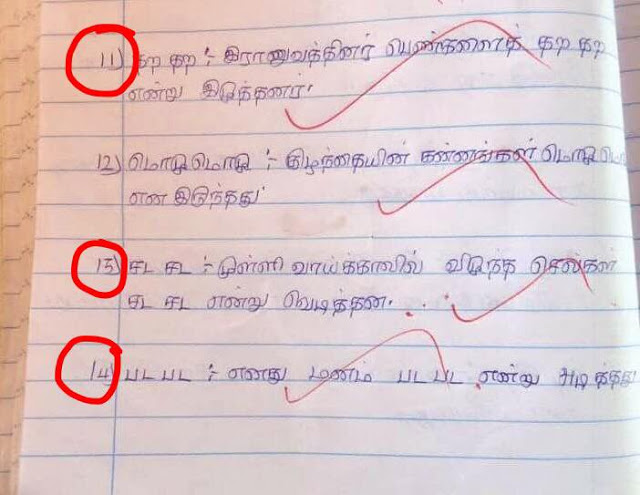 11) தற தற :- இரானுவத்தினர் பெண்களைத் தற தற
என்று இழுத்தனர்.
12) மொழுமொழு :- குழந்தையின் கன்னங்கள் மொழுமொ
என இருந்தது
13) சட சட :- முள்ளி வாய்க்காலில் விழுந்த செல்கள்
சட சட என்று வெடித்தன.
14) பட பட :- எனது மனம் பட பட என்று அடித்தது